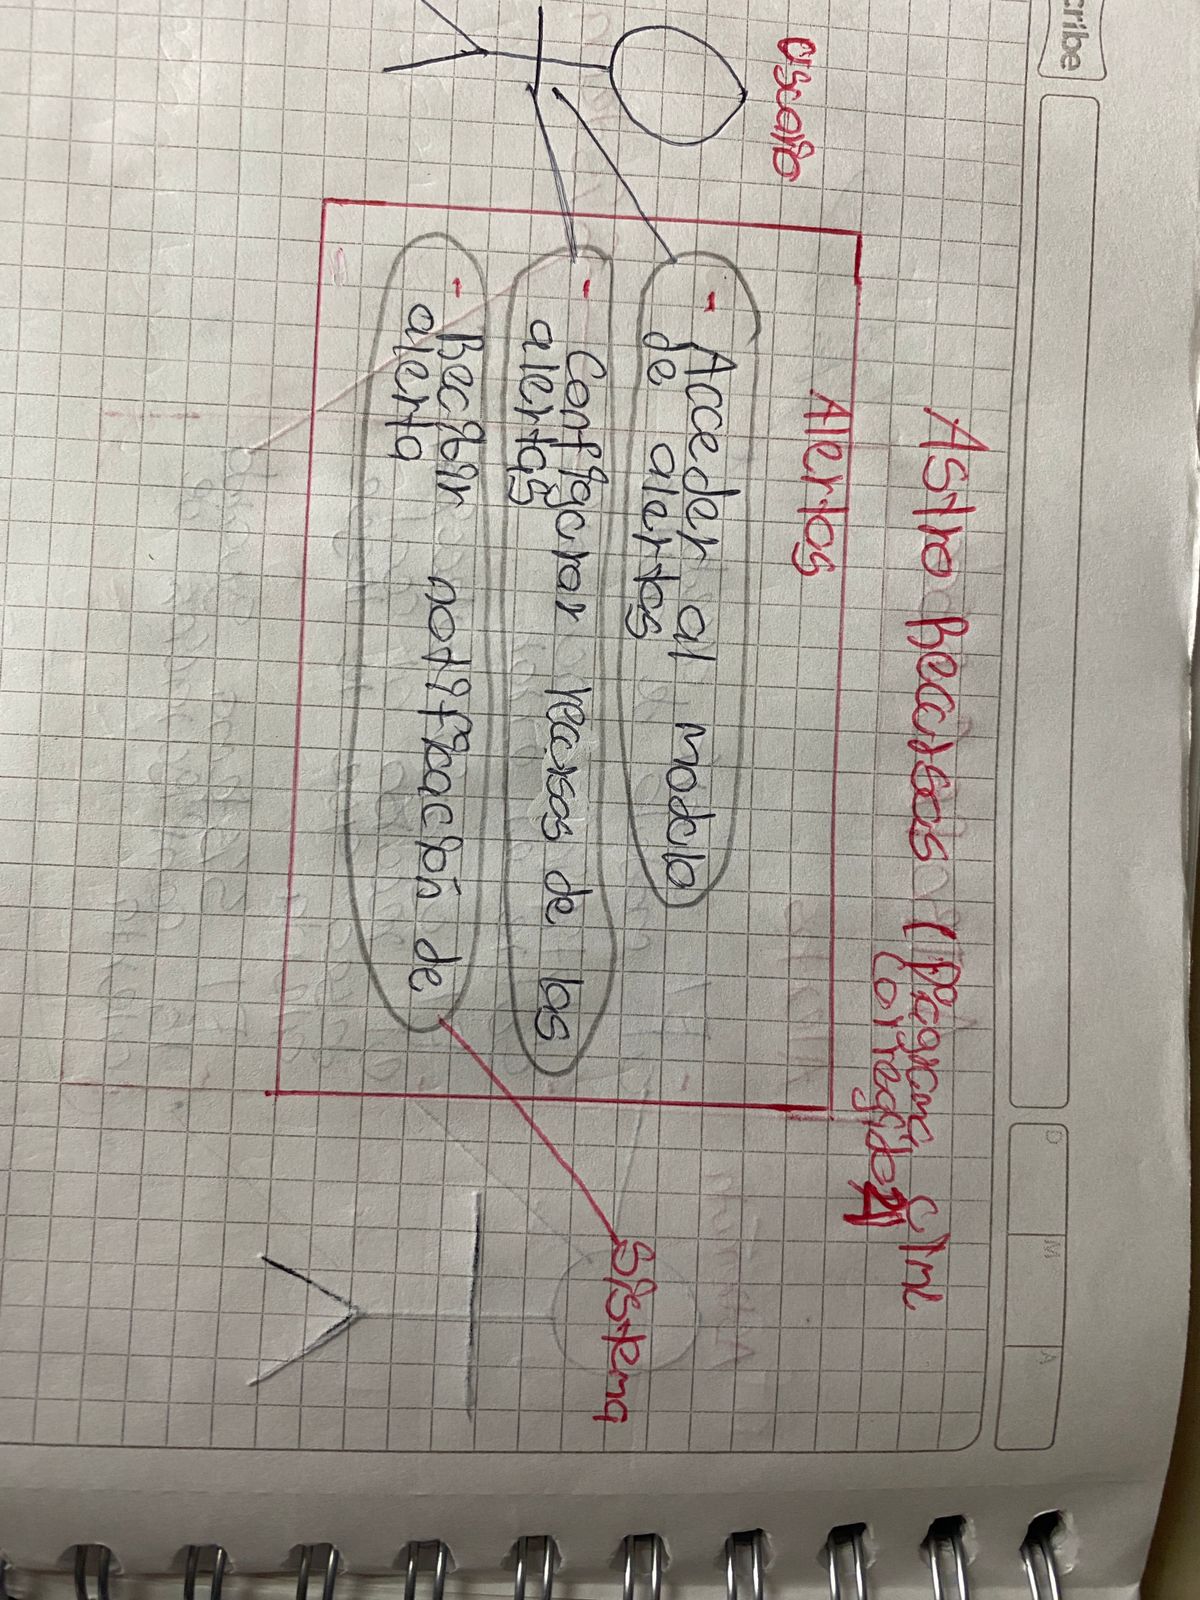 cribe
D M A
Astro Recursos (Diagrama UML
Corregida)
Usuario
Alertas
- Acceder al modulo
de alertas
- Configurar recursos de las
alertas
- Recibir notificación de
alerta
Sistema